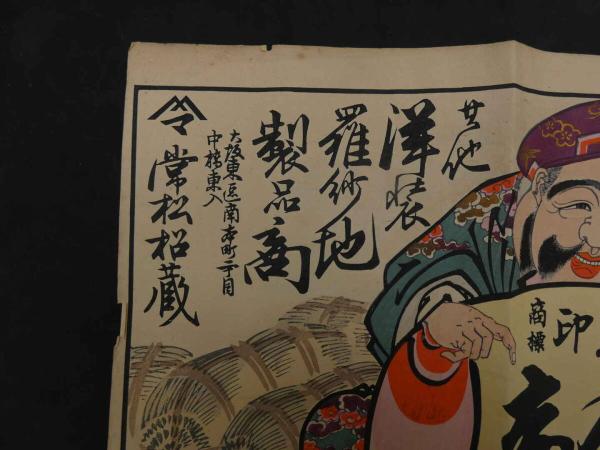 其他
洋装
羅紗地
製品商
大阪東区南本町二丁目
中橋東入
常松松蔵
印
商標